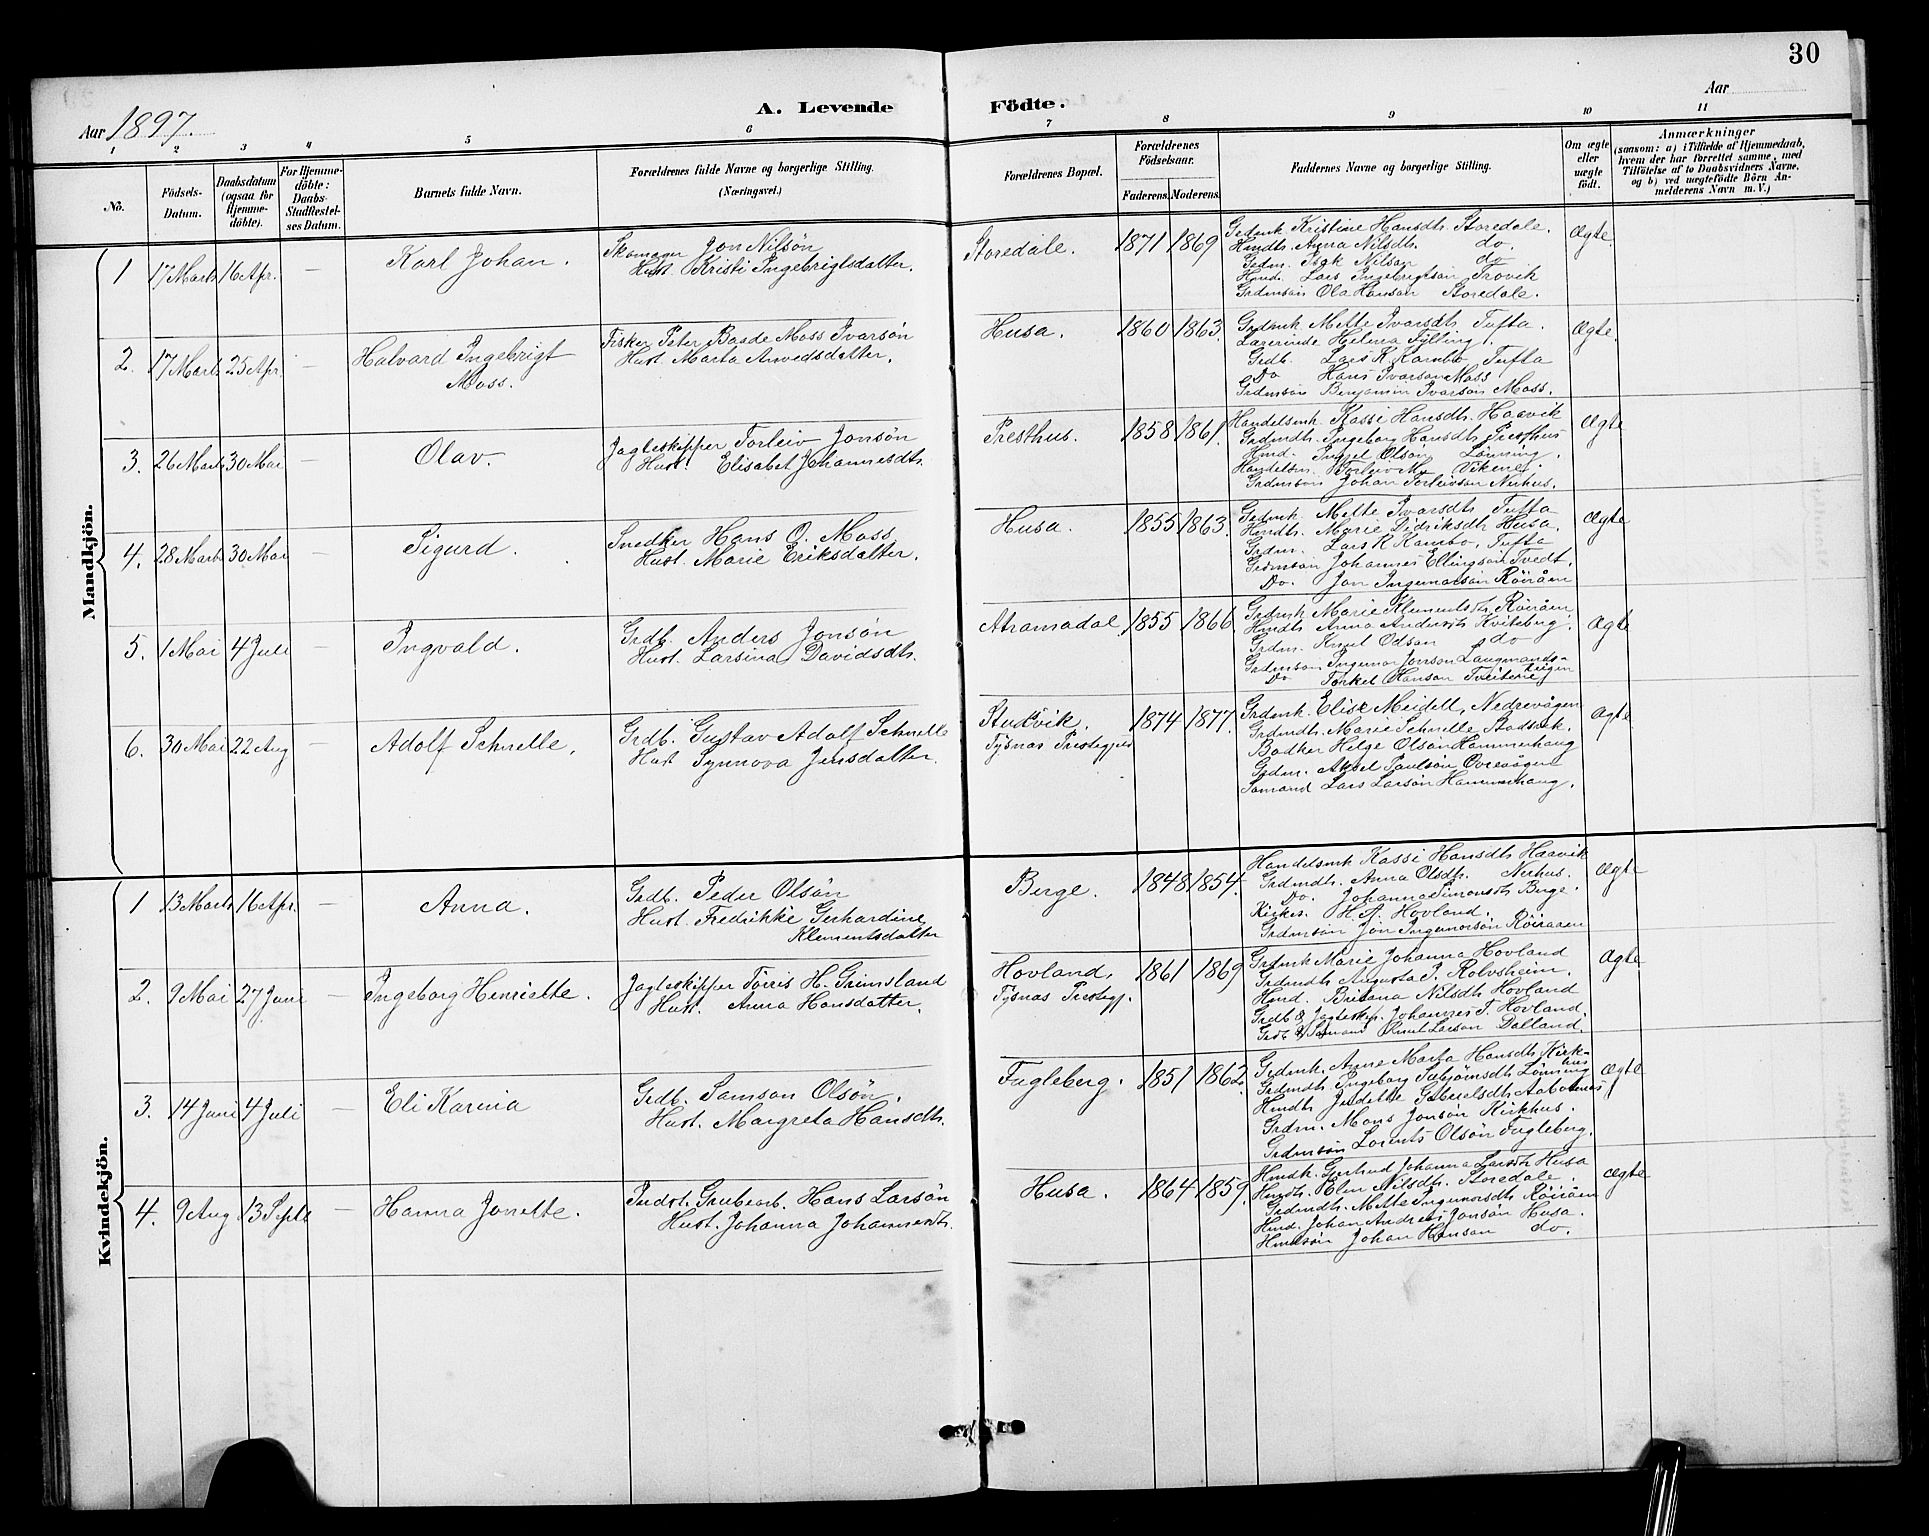 30
Aar 1897.
A. Levende Födte.
Aar
1 2 3 4 5 6 7 8 9 10 11
No.
Födsels-Datum.
Daabsdatum (ogsaa for Hjemme-döbte).
For Hjemme-döbte: Daabs-Stadfæstel-ses Datum.
Barnets fulde Navn.
Forældrenes fulde Navne og borgerlige Stilling.
(Næringsvei.)
Forældrenes Bopæl.
Forældrenes Födselsaar.
Faderens. Moderens.
Faddernes Navne og borgerlige Stilling.
Om ægte eller uægte födt.
Anmærkninger
(saasom: a) i Tilfælde af Hjemmedaab, hvem der har forrettet samme, med Tilföielse af to Daabsvidners Navne, og b) ved uægtefödte Börn An-melderens Navn m. V.)
Mandkjön.
1 17 Marts 16 Apr. — Karl Johan.
Skomager Jon Nilsön
Hust. Kristi Ingebrigtsdatter.
Storedale. 1871 1869
Grdmk. Kristine Hansdtr. Storedale.
Hmdtr. Anna Nilsdtr. do.
Grdm. Isak Nilson do
Hmd. Lars Ingebrigtson Trovik
Grdmsön Ola Hanson Storedale.
Ægte.
2. 17 Marts 25 Apr. — Halvard Ingebrigt
Moss.
Fisker Peter Baade Moss Ivarsön
Hust. Marta Arvedsdatter.
Husa. 1860 1863.
Grdmk. Mette Ivarsdtr. Tufta.
Lærerinde Helena Fylling.
Grdb. Lars K. Kambo Tufta
Do Hans Ivarson Moss
Grdmsön Benjamin Ivarson Moss.
Ægte.
3. 26 Marts 30 Mai — Olav.
Jagteskipper Torleiv Jonsön
Hust. Elisabet Johannesdtr.
Presthus. 1858 1861.
Handelsmk. Kassi Hansdtr. Haavik
Grdmdtr. Ingeborg Hansdtr. Presthus
Hmd. Olson Lönning.
Handelsm. Torleiv Vikene.
Grdmsön Johan Torleivson Nerhus.
Ægte
4. 28 Marts 30 Mai — Sigurd.
Snedker Hans O. Moss
Hust. Marie Eriksdatter.
Husa. 1855 1863.
Grdmk. Mette Ivarsdtr. Tufta
Hmdtr. Marie Didriksdtr. Husa.
Grdm. Lars K Kambo, Tufta
Grdmsön Johannes Ellingson Tvedt.
Do. Jon Ingemorsön Röiråen
Ægte
5. 1 Mai 4 Juli — Ingvald.
Grdb. Anders Jonsön
Hust. Larsina Davidsdtr.
Atramadal. 1855 1866.
Grdmk. Marie Klementsdtr. Röiråen
Hmdtr. Anna Andersdtr. Kviteberg.
Grdm. Knut Odson do
Grdmson Ingemor Jonson Laugmands-
Do Torkel Hanson Tveitene haugen
Ægte
6. 30 Mai 22 Aug — Adolf Schnelle.
Grdb. Gustav Adolf Schnelle
Hust. Synnova Jensdatter.
Studvik.
Tysnæs Prestegjeld
1874 1877.
Grdmk. Elise Meidell, Nedrevågen
Grdmdtr. Marie Schnelle Stodsvk.
Bödker Helge Olson Hammerhaug
Grdm. Aksel Paulson Övrevågen
Sömand Lars Larsön Hammerhaug.
Ægte
Kvindekjön.
1 13 Marts 16 Apr. Anna.
Grdb. Peder Olsön
Hust. Fredrikke Gerhardine
Klementsdatter
Berge. 1848 1854.
Handelsmk Kassi Hansdtr. Haavik
Grdmdtr. Anna Olsdtr. Nerhus.
Do. Johanna Simonsdtr Berge.
Kirkes. H. A. Hovland.
Grdmsön Jon Ingemorsön Röiraaen
Ægte
2. 9 Mai 27 Juni — Ingeborg Henriette.
Jagteskipper Torris H. Grimsland
Hust. Anna Hansdatter.
Hovland,
Tysnæs Prestegj.
1861 1869
Grdmk Marie Johanna Hovland
Grdmdtr. Augusta P. Rolvsheim.
Hmd. Britana Nilsdtr. Hovland
Grdb & Jagteskip. Johannes T. Hovland.
Grdb & Sömand Knut Larson Dalland.
Ægte
3. 14 Juni 4 Juli — Eli Karina
Grdb. Samson Olsön.
Hust. Margreta Hansdtr.
Fugleberg. 1851 1862
Grdmk. Anne Marta Hansdtr. Kirk-hus
Grdmdtr. Ingeborg Sæbjörnsdtr Lönning
Hmdtr Judette Gabrielsdtr Aabotnes
Grdm. Mons Jonson Kirkhus.
Grdmsön Lorents Olsön Fugleberg.
Ægte
4. 9 Aug 13 Septb — Hanna Jonette.
Indst. Grubearb. Hans Larsön
Hust. Johanna Johannesdtr.
Husa. 1864 1859.
Hmdk. Gertrud Johanna Larsdtr Husa
Hmdtr. Elen Nilsdtr. Storedale.
Grdmdtr. Mette Ingemorsdtr Röiråen
Hmd. Johan Andreas Jonsön Husa.
Hmdsön Johan Hanson do.
Ægte